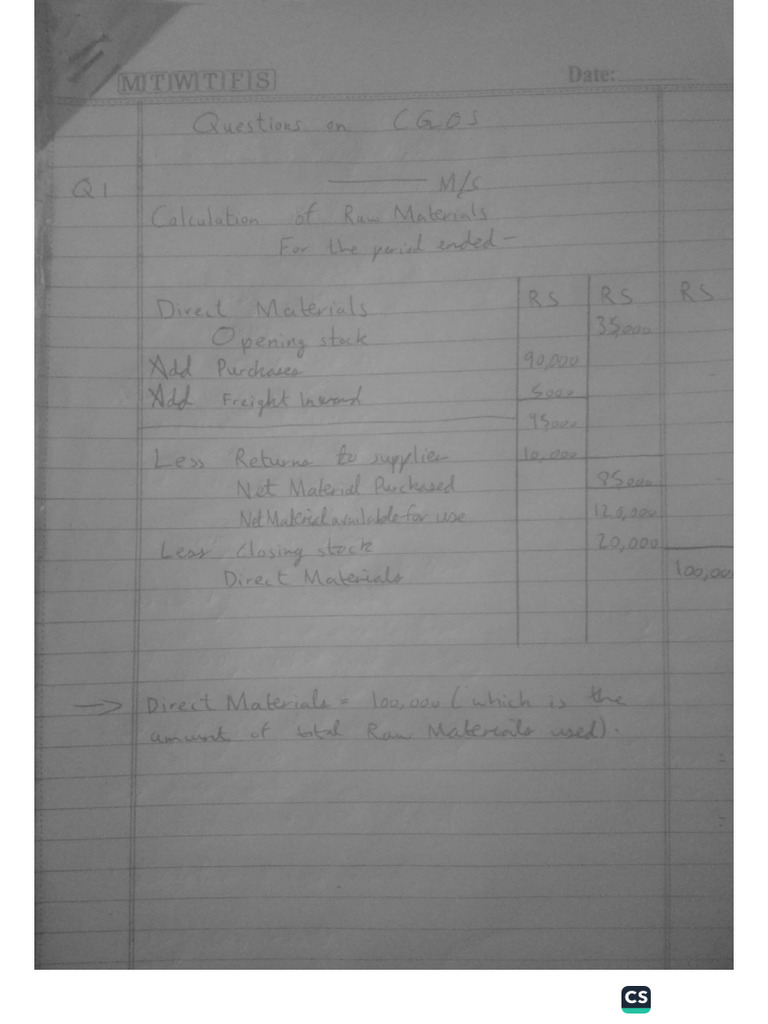 M T W T F S Date:
Questions on CGOS
Q1 M/S
Calculation of Raw Materials
For the period ended -
Direct Materials RS RS RS
Opening stock 35000
Add Purchases 90,000
Add Freight Inward 5000
95000
Less Returns to supplier 10,000
Net Material Purchased 85000
Net Material available for use 120,000
Less Closing stock 20,000
Direct Materials 100,00
→ Direct Materials = 100,000 (which is the
amount of total Raw Materials used).
CS